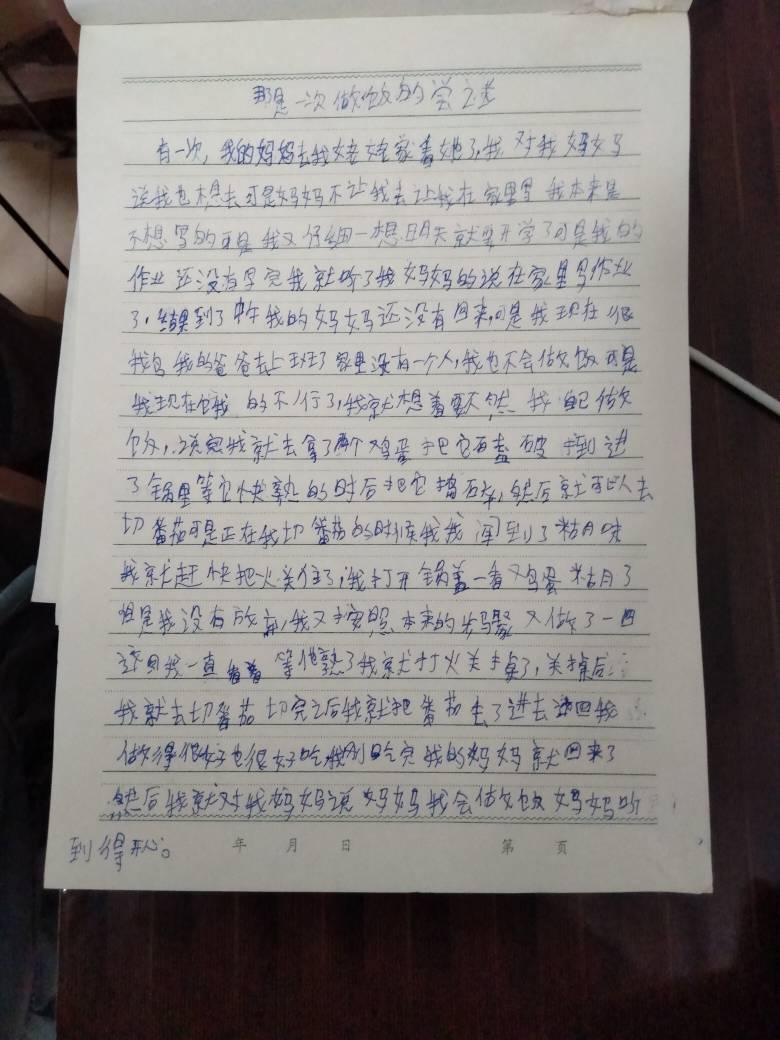 那是一次做饭的尝过
有一次,我的妈妈去我姥姥家看她了,我对我妈妈
说我也想去可是妈妈不让我去让我在家里写我本来是
不想写的可是我又仔细一想明天就要开学了可是我的
作业还没有写完我就听了我妈妈的说在家里写作业
了,结果到了中午我的妈妈还没有回来,可是我现在很
我的爸爸去上班了家里没有一个人,我也不会做饭可是
我现在饿的不行了,我就想着要不然我自己做
饭,说完我就去拿了两个鸡蛋把它破到进
了锅里等它快熟的时后把它捣碎,然后就可以去
切番茄可是正在我切番茄的时候我我闻到了糊味
我就赶快把火关住了,我打开锅盖一看鸡蛋糊了
但是我没有放弃,我又按照本来的步骤又做了一回
这回我一直看着等他熟了我就打火关掉了,关掉后
我就去切番茄切完之后我就把番茄丢了进去这回我
做得很好也很好吃,我刚吃完我的妈妈就回来了
然后我就对我妈妈说妈妈我会做饭妈妈听
到得开心。
年 月 日 第 页